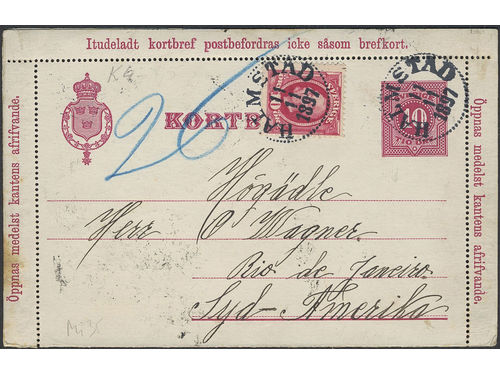 Itudeladt kortbref postbefordras icke såsom brefkort.
Öppnas medelst kantens afrifvande.
Öppnas medelst kantens afrifvande.
26
KORTB
HALMSTAD
1897
HALMSTAD
1897
10
Högädle
Herr O Wagner.
Rio de Janeiro.
Syd-Amerika